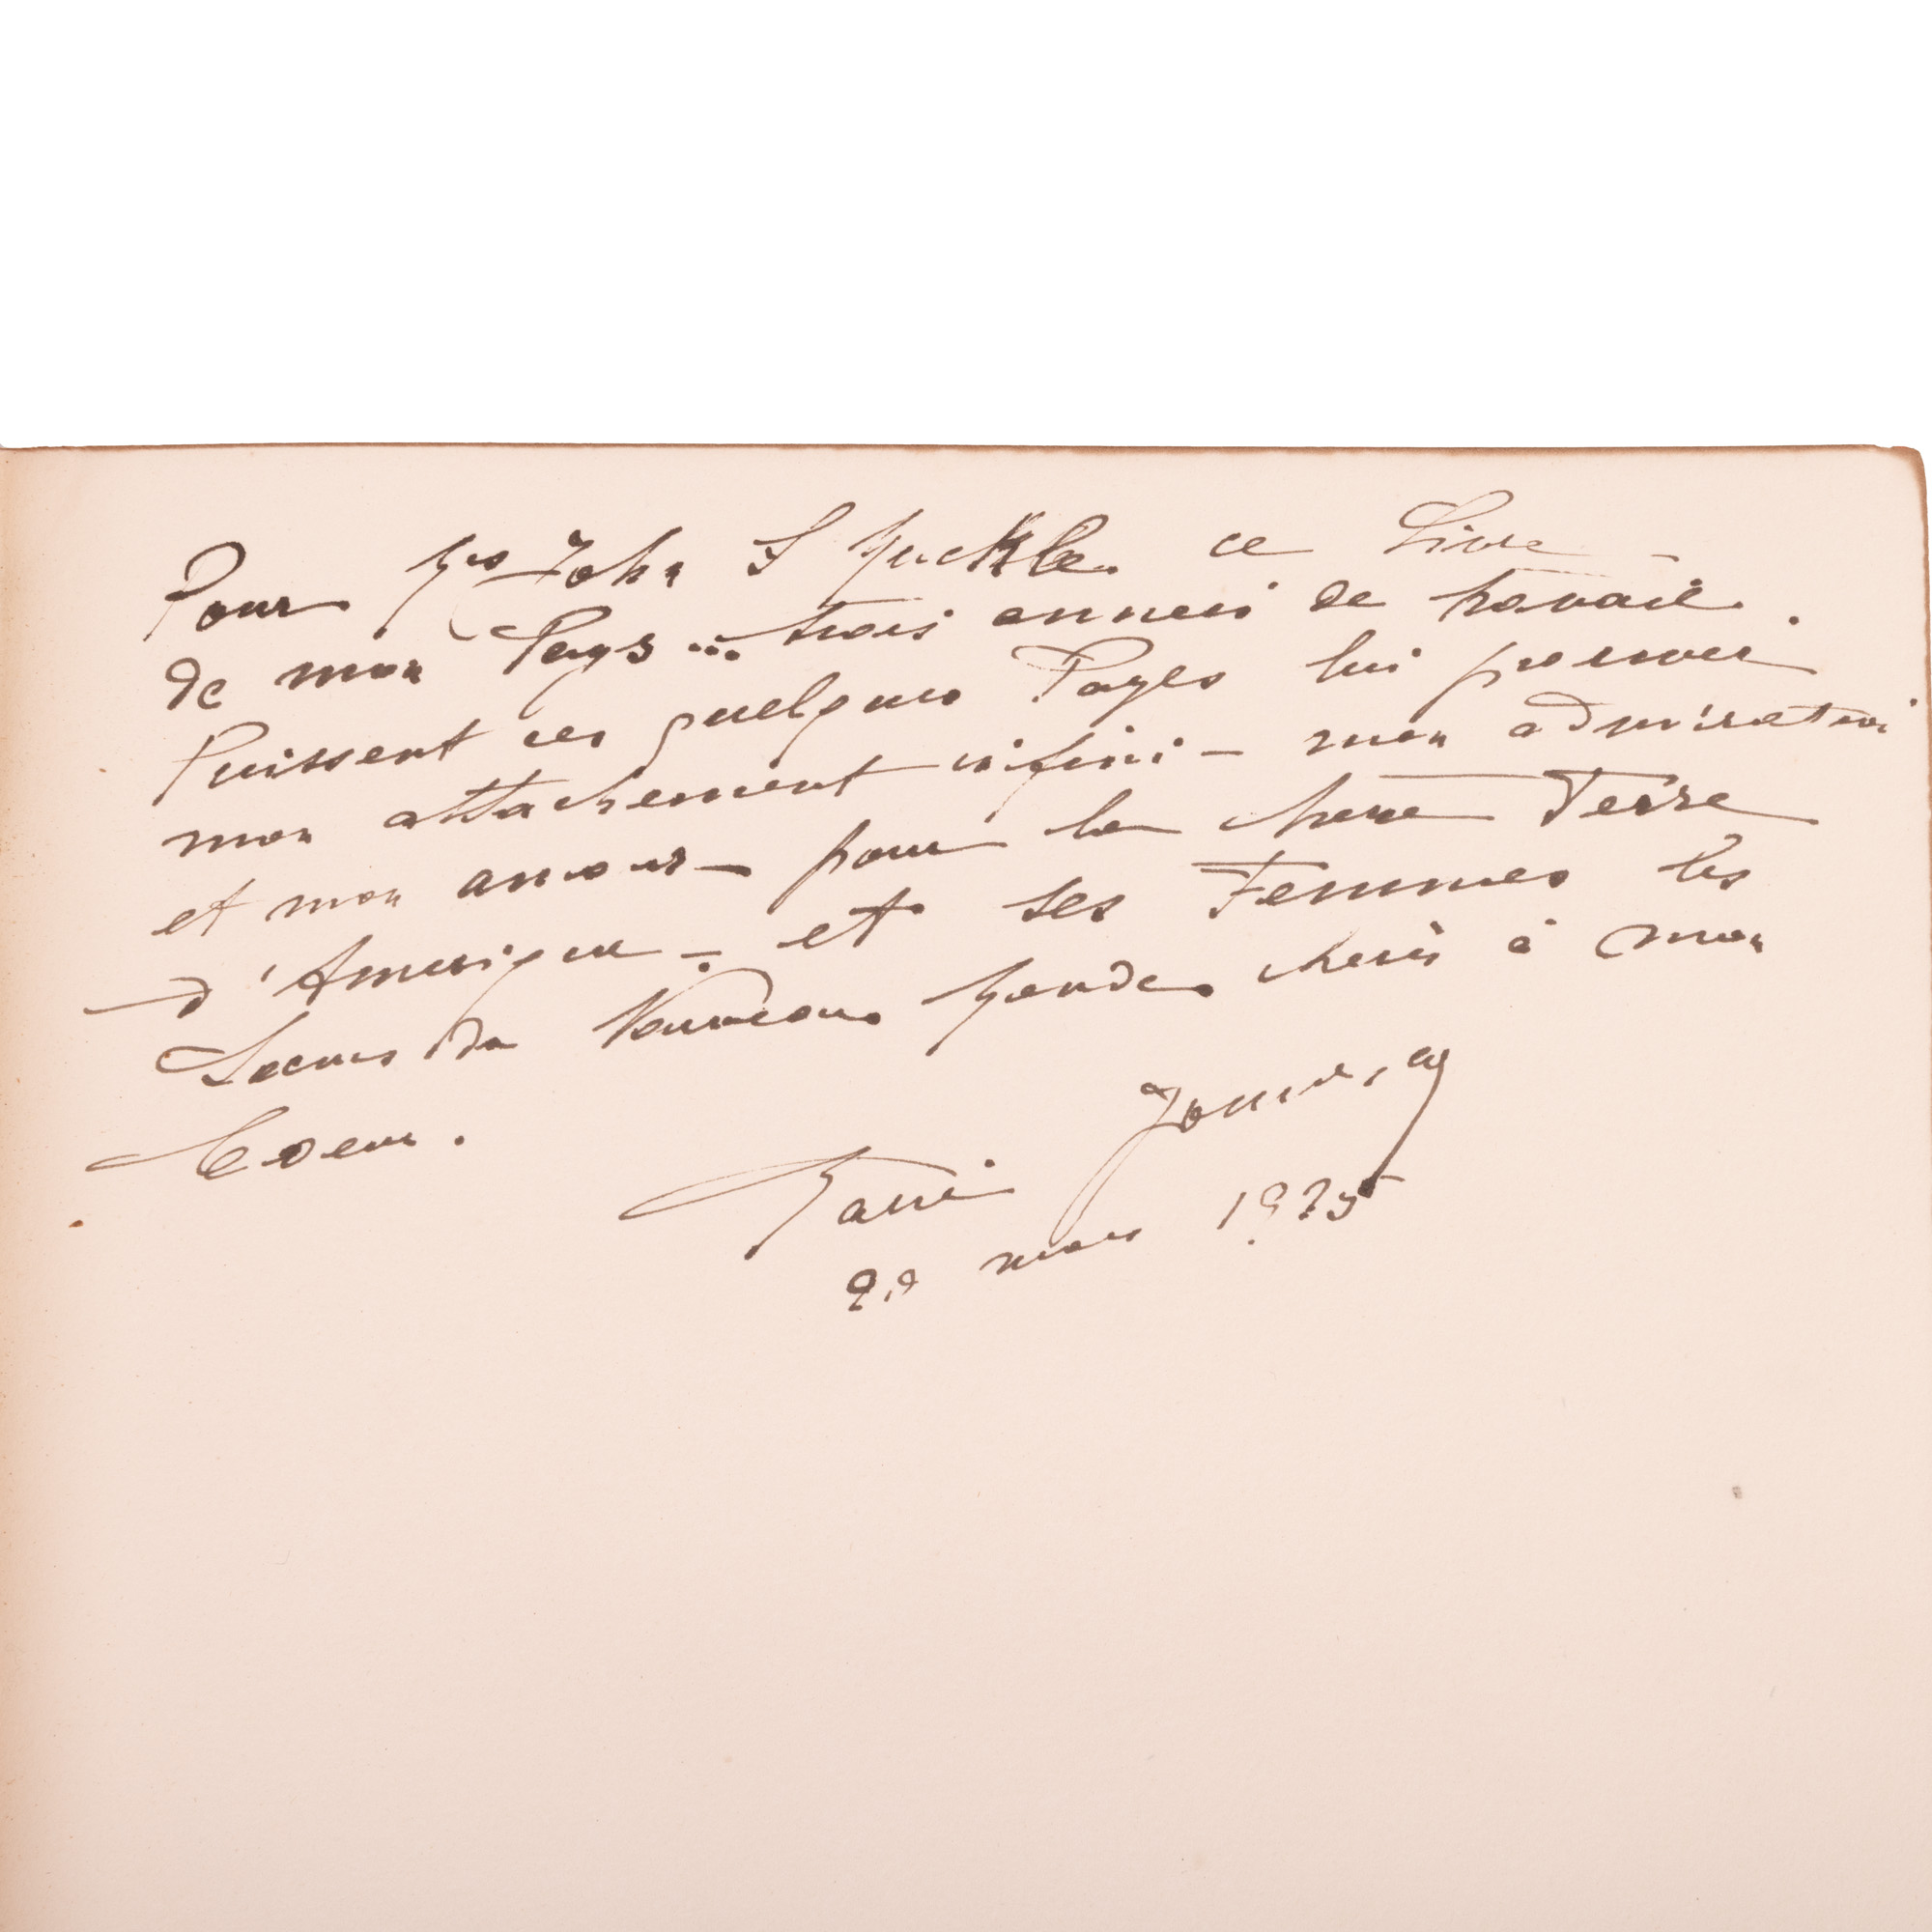 Pour Mrs John S Muckle ce Livre -
de mon Pays ... trois années de travail.
Puissent ces quelques Pages lui prouver
mon attachement infini - mon admiration
et mon amour - pour la chère Terre
d'Amérique - et ses Femmes les
Soeurs du Nouveau Monde chéries à mon
Coeur.
Marie
mars 1925